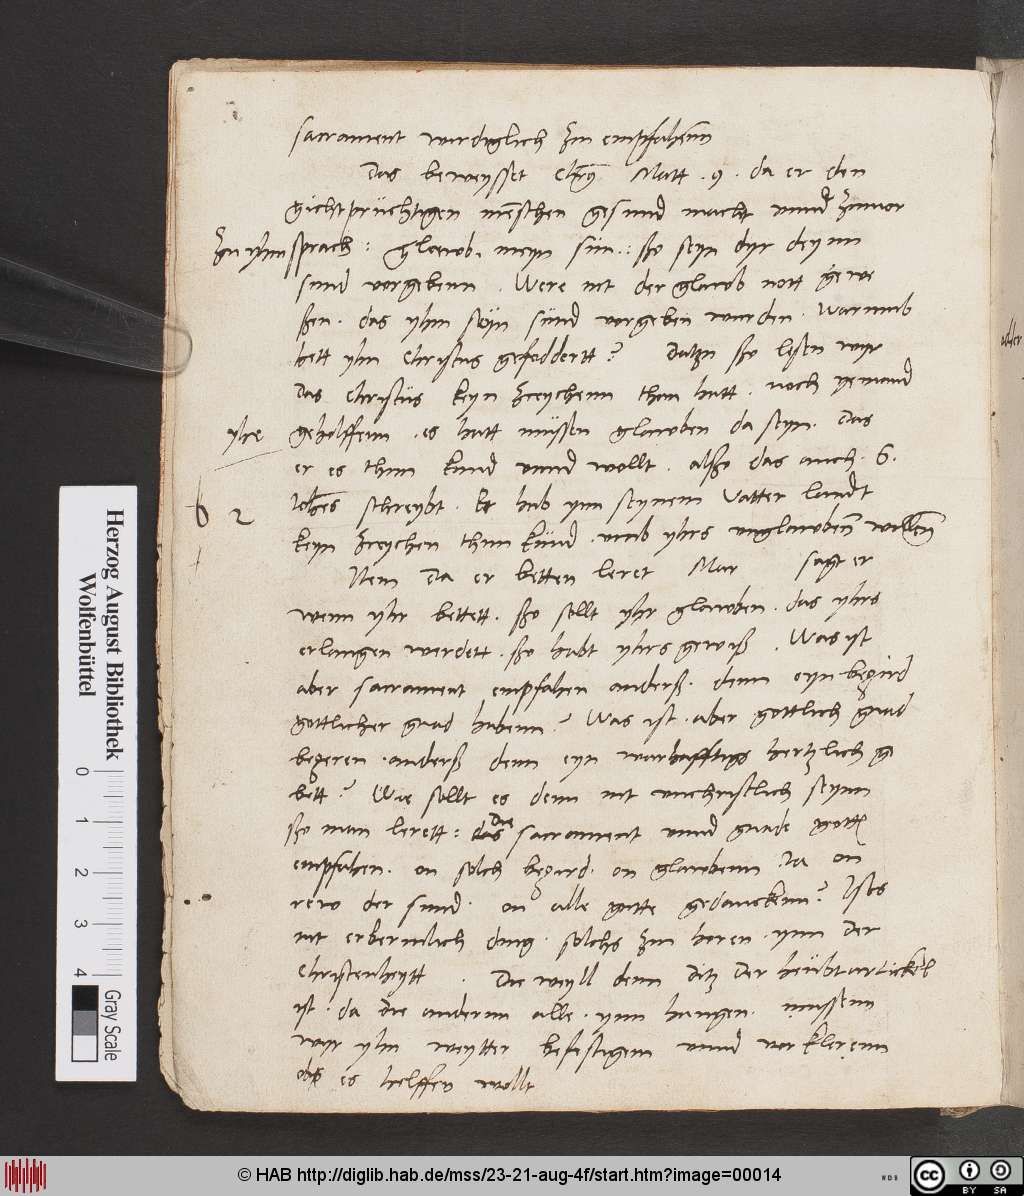 sacrament wirdiglich zu empfahenn
Das beweysset Chrs Matt . 9 . da er den
gichtpruchtigen menschen gesund macht unnd zuuor
zu yhm sprach : Glawb . meyn sün : ßo seyn dyr deynn
sund vorgebenn . Were nit der glawb nott gewe
ßen . das yhm seyn sünd vorgeben wurden . Warumb
hett yhn Christus gefoddertt ? Datzu ßo lesen wyr
das Christus keyn zceychenn than hatt . noch yemand
yhe geholffenn . es hatt müssen glawben da seyn . Das
er es thun kund unnd wollt . alßo das auch . 6 .
Johes schreybt . Er hab ynn seynem vatter landt
keyn zceychen thun künd . umb yhrs unglawbenn willenn
Item da er betten leret Mar sagt er
wenn yhr bettett . ßo sollt yhr glawben . das yhrs
erlangen werdett . ßo habt yhrs gewiß . Was ist
aber sacrament empfahen anderß . denn eyn begird
gottlicher gnad habenn ? Was ist . aber gottlich gnad
begeren . anderß denn eyn warhafftigs hertzlich ge
bett ? Wie sollt es denn nit unchristlich seynn
ßo man lerett : das Die sacrament unnd gnade gotts
empfahen . on solch begird . on glawbenn Ja on
rew der sund . on alle gutte gedanckenn ? Ists
nit erbermlich ding . solchs zu horen . ynn der
Christenheytt . Die weyll denn ditz der heubtartickel
ist . da die andernn alle . ynn hangen . mussenn
wyr yhn weytter befestigenn unnd vorklerenn
obs es helffen wollt
6 2
Herzog August Bibliothek
Wolfenbüttel
0 1 2 3 4
Gray Scale
© HAB http://diglib.hab.de/mss/23-21-aug-4f/start.htm?image=00014
WDB
cc BY SA